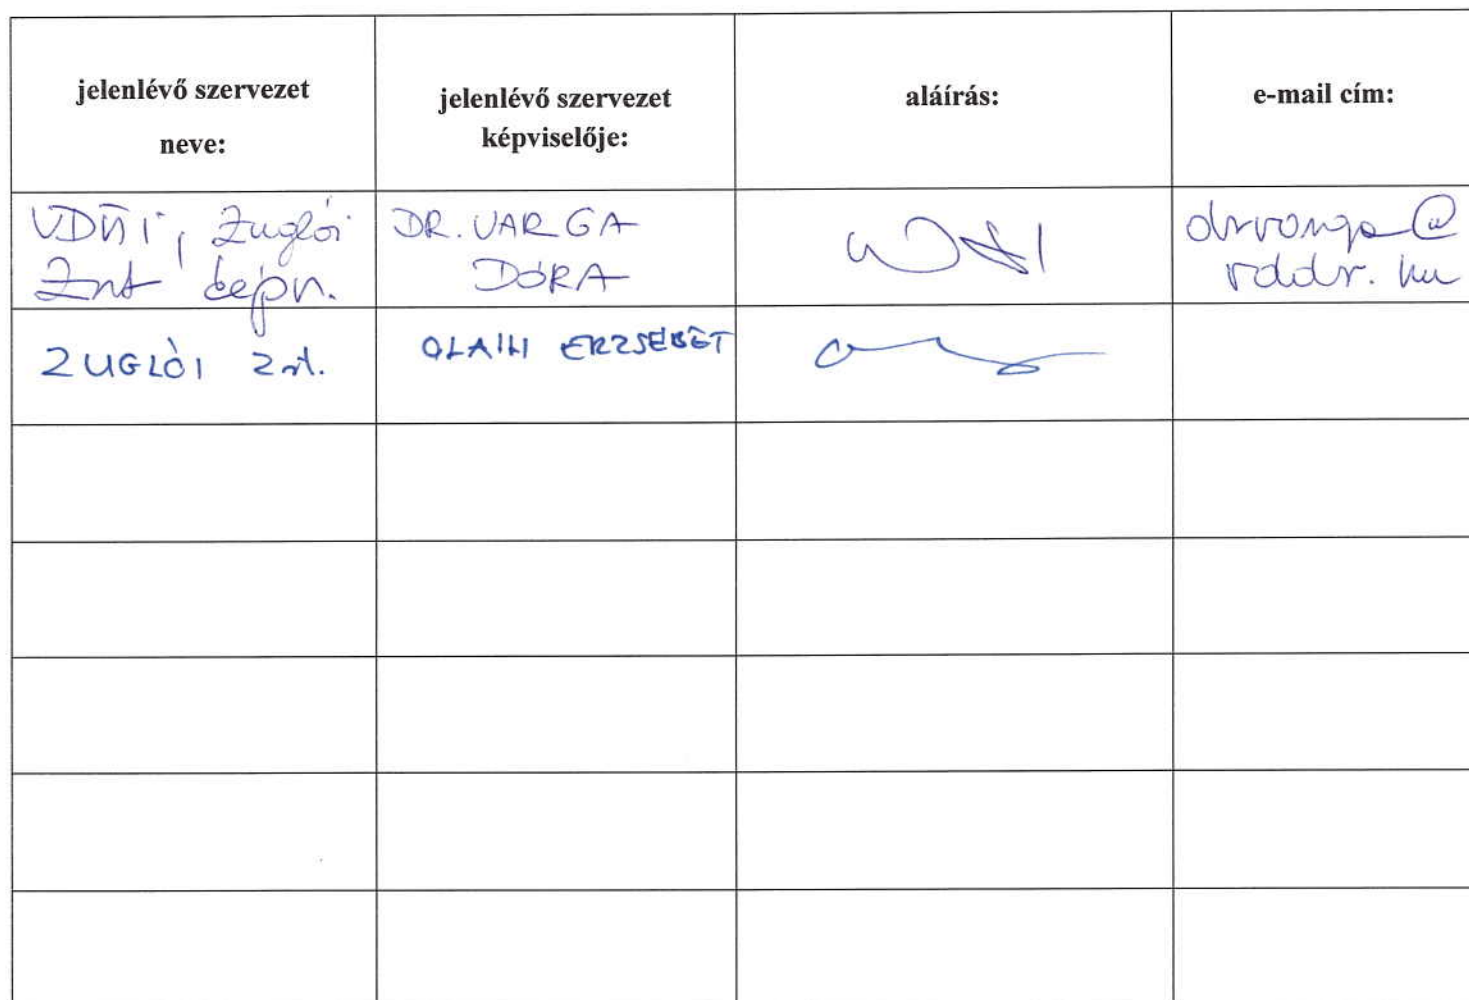 jelenlévő szervezet
neve:
jelenlévő szervezet
képviselője:
aláírás:
e-mail cím:
Zuglói
Znt képv.
DR. VARGA
DÓRA
drvarga@
vddr.hu
ZUGLÓI Zrt.
ERZSÉBET